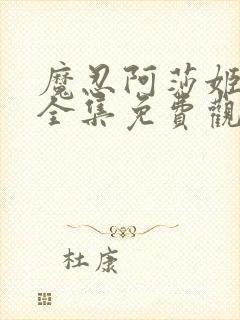 魔忍阿莎姬
全集免費觀
杜康